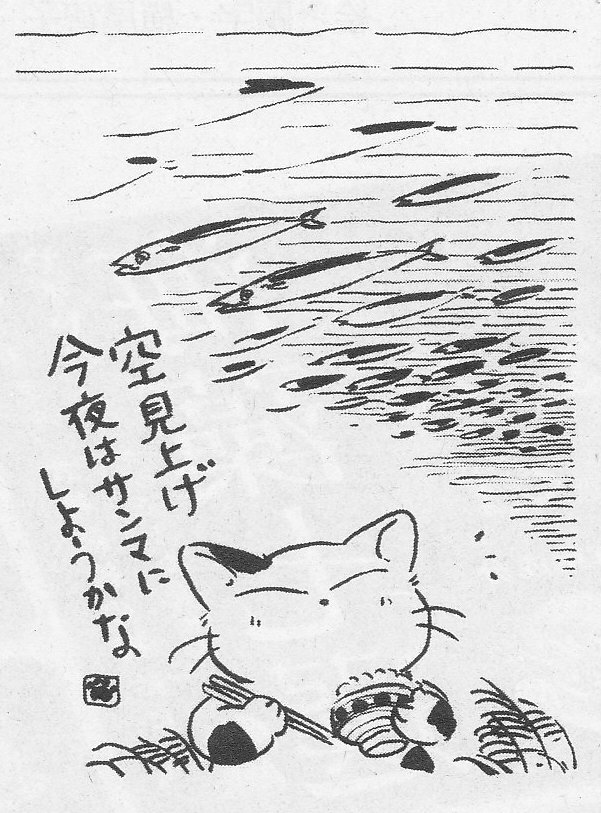 空見上げ
今夜はサンマに
しようかな